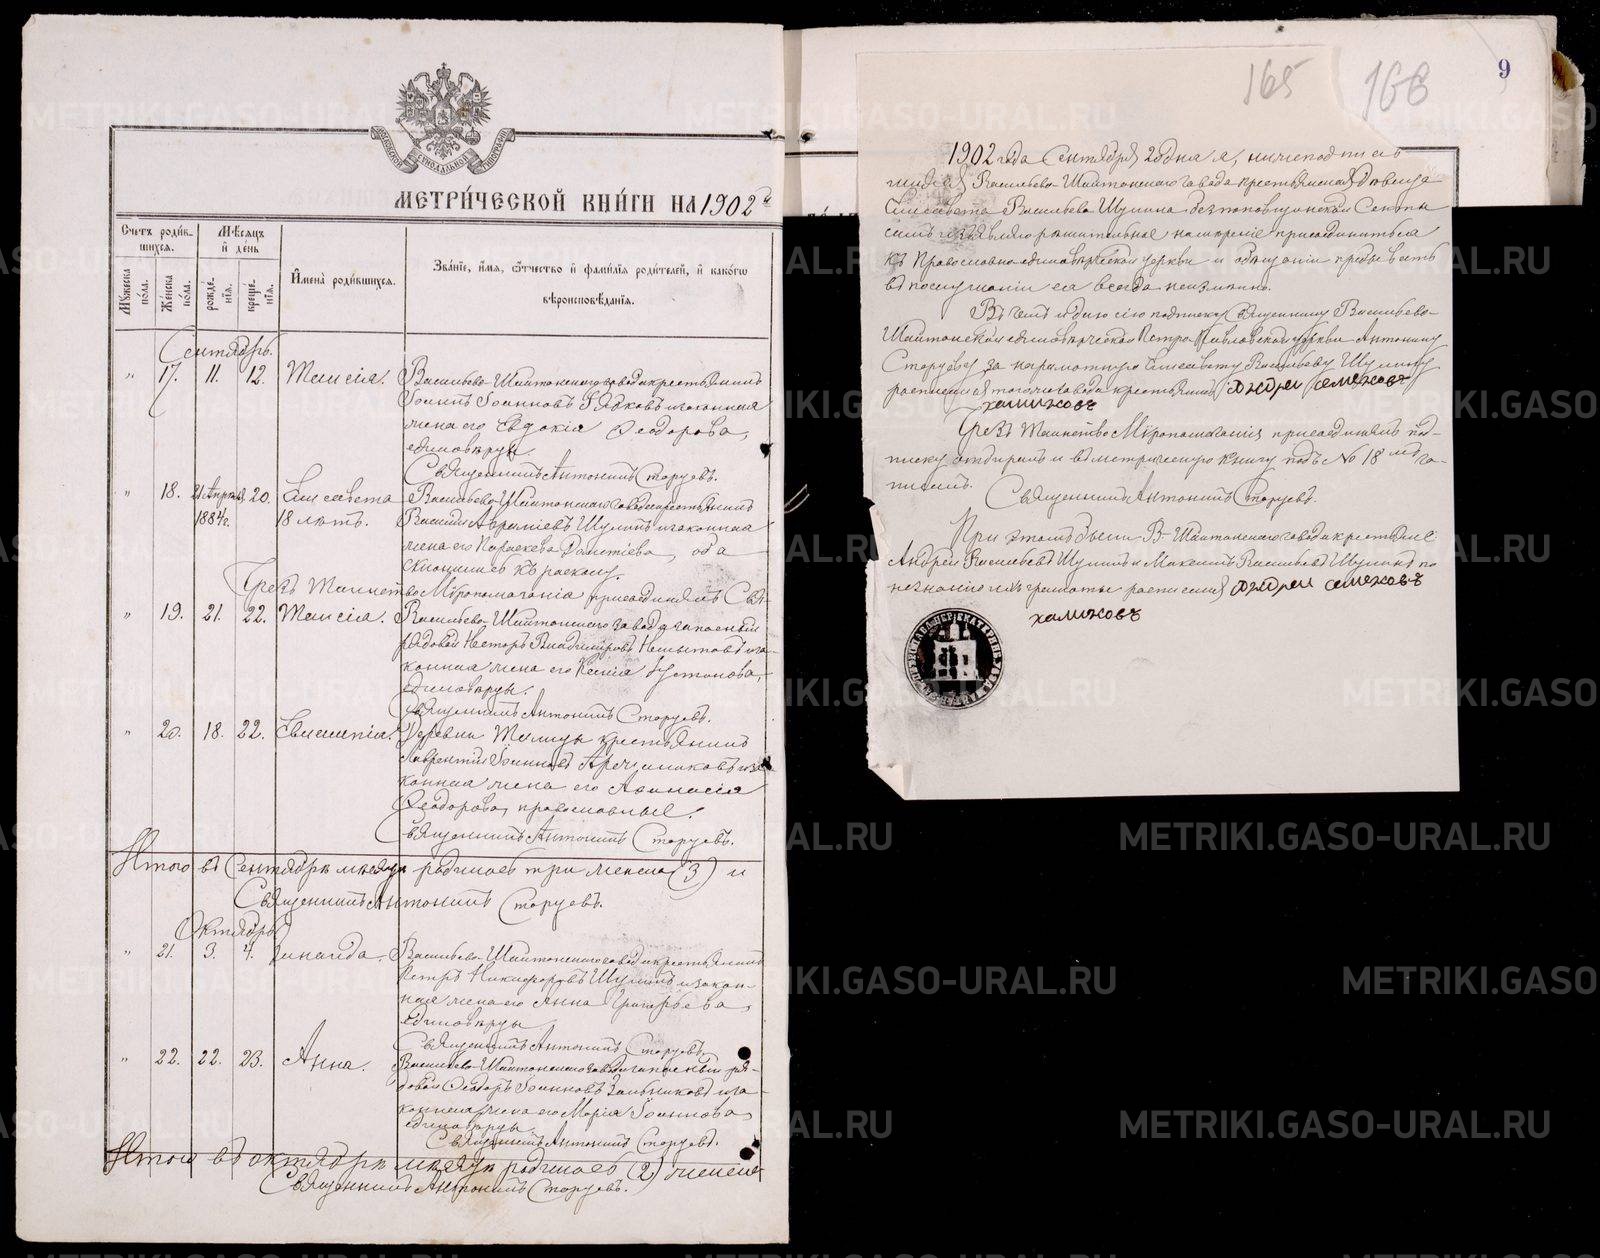 МЕТРИ́ЧЕСКОЙ КНИ́ГИ НА 1902
Счетъ роди́в-
шихся.
Мѣ́сяцъ
и҆ де́нь
Мꙋ́жеска
по́ла.
Же́нска
по́ла.
рожде́
нїѧ.
креще́
нїѧ.
И҆мена̀ роди́вшихсѧ.
Зва́нїе, и҆́мѧ, ѻ҆́тчество и҆ фами́лїѧ роди́телей, и҆ како́гѡ
вѣроисповѣ́данїѧ.
Сентябрь.
" 17. 11. 12. Таисія. Васильево-Шайтанскаго завода крестьянинъ
Іоаннъ Іоанновъ Рядковъ и законная
жена его Евдокія Ѳеодорова,
единовѣрцы.
Священникъ Антонинъ Старцевъ.
" 18. 21 Апрѣля 20. Елисавета Васильево-Шайтанскаго завода крестьянинъ
1884 г. 18 лѣтъ. Василій Авраміевъ Шулинъ и законная
жена его Параскева Дометіева, оба
склонились къ расколу.
Чрезъ Таинство Мѵропомазанія присоединялъ Свя-
" 19. 21. 22. Таисія. Васильево-Шайтанскаго завода запасный
рядовой Несторъ Владиміровъ и за-
конная жена его Ксенія
единовѣрцы.
Священникъ Антонинъ Старцевъ.
" 20. 18. 22. Евлампія. Деревни Талицы крестьянинъ
Лаврентій Іоанновъ и за-
конная жена его Аѳанасія
Ѳеодорова, православные.
Священникъ Антонинъ Старцевъ.
Итого въ Сентябрѣ мѣсяцѣ родилось три женска (3) и
Священникъ Антонинъ Старцевъ.
Октябрь
" 21. 3. 4. Зинаида. Васильево-Шайтанскаго завода крестьянинъ
Петръ Никифоровъ Шулинъ и закон-
ная жена его Анна Григорьева,
единовѣрцы
Священникъ Антонинъ Старцевъ.
" 22. 22. 23. Анна. Васильево-Шайтанскаго завода запасный ря-
довой Ѳеодоръ Іоанновъ и за-
конная жена его Марія Іоаннова
единовѣрцы.
Священникъ Антонинъ Старцевъ.
Итого въ октябрѣ мѣсяцѣ родилось (2) женска
Священникъ Антонинъ Старцевъ.
165 166 9
1902 года Сентября 20 дня я, нижеподписав
шаяся Васильево-Шайтанскаго завода крестьянская дѣвица
Елисавета Васильева Шулина безпоповщинской секты
симъ изъявляю рѣшительное намѣреніе присоединиться
къ Православно единовѣрческой церкви и обѣщаніи пребывать
въ послушаніи ея всегда неизмѣнно.
Въ чемъ и даю сію подписку Священнику Васильево-
Шайтанской единовѣрческой Петро-Павловской церкви Антонину
Старцеву за неграмотную Елисавету Васильеву Шулину
росписался того же завода крестьянинъ Андрей Семеновъ
халиковъ
Чрезъ Таинство Мѵропомазанія присоединялъ под-
писку отбиралъ и въ метрическую книгу подъ № 18 мъ за-
писалъ.
Священникъ Антонинъ Старцевъ.
При этомъ были В-Шайтанскаго завода крестьяне:
Андрей Васильевъ Шулинъ и Максимъ Васильевъ Шулинъ по
незнанію ихъ грамоты росписался Андрей Семеновъ
халиковъ
METRIKI.GASO-URAL.RU